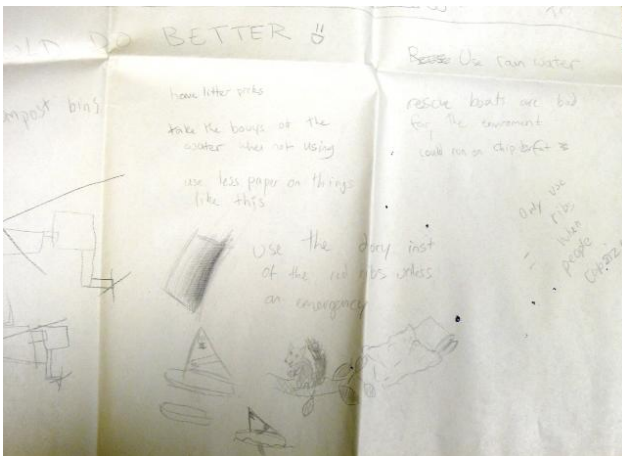 LD DO BETTER
mpost bins
have litter picks
take the bouys ot the
water when not using
use less paper on things
like this
use the dory inst
of the red ribs unless
an emergency
Use rain water
rescue boats are bad
for the enviroment
could run on chip fat
only use
ribs
when
people
capsize